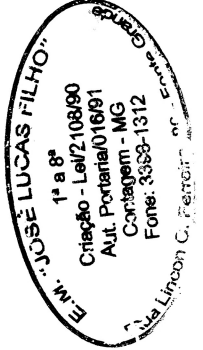 E.M. "JOSÉ LUCAS FILHO"
1ª a 8ª
Criação - Lei/2108/90
Aut. Portaria/016/91
Contagem - MG
Fone: 3393-1312
Rua Lincon C. Ferreira